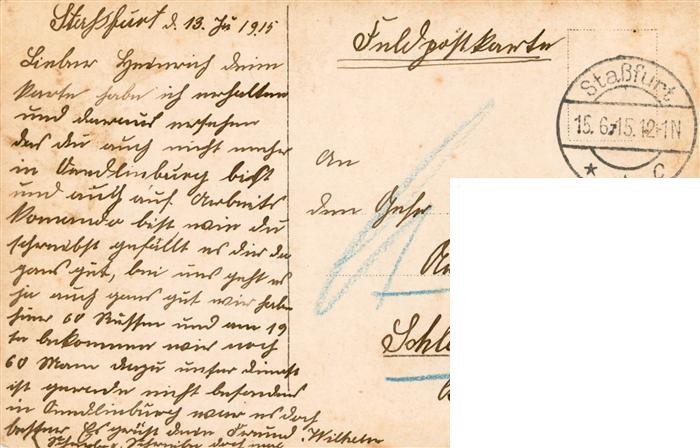 Staßfurt d. 13. Ju 1915
Lieber Heinrich dein
karte habe ich erhalten
und daraus ersehen
das du auch nicht mehr
in Quedlinburg bist
und auch auf Arbeits
Komando bist wie du
schreibst gefällt es dir da
gans gut, bei uns geht es
ja auch gans gut wir habe
hier 60 Russen und am 19
te bekommen wir noch
60 Mann dazu unser dienst
ist gerade nicht besonders
in Quedlinburg war es doch
besser. Es grüst dein Freund. Wilhelm
Schreibe doch
Feldpostkarte
An
dem Gefr
Schl
Staßfurt
15.6.15.12-1N
* c